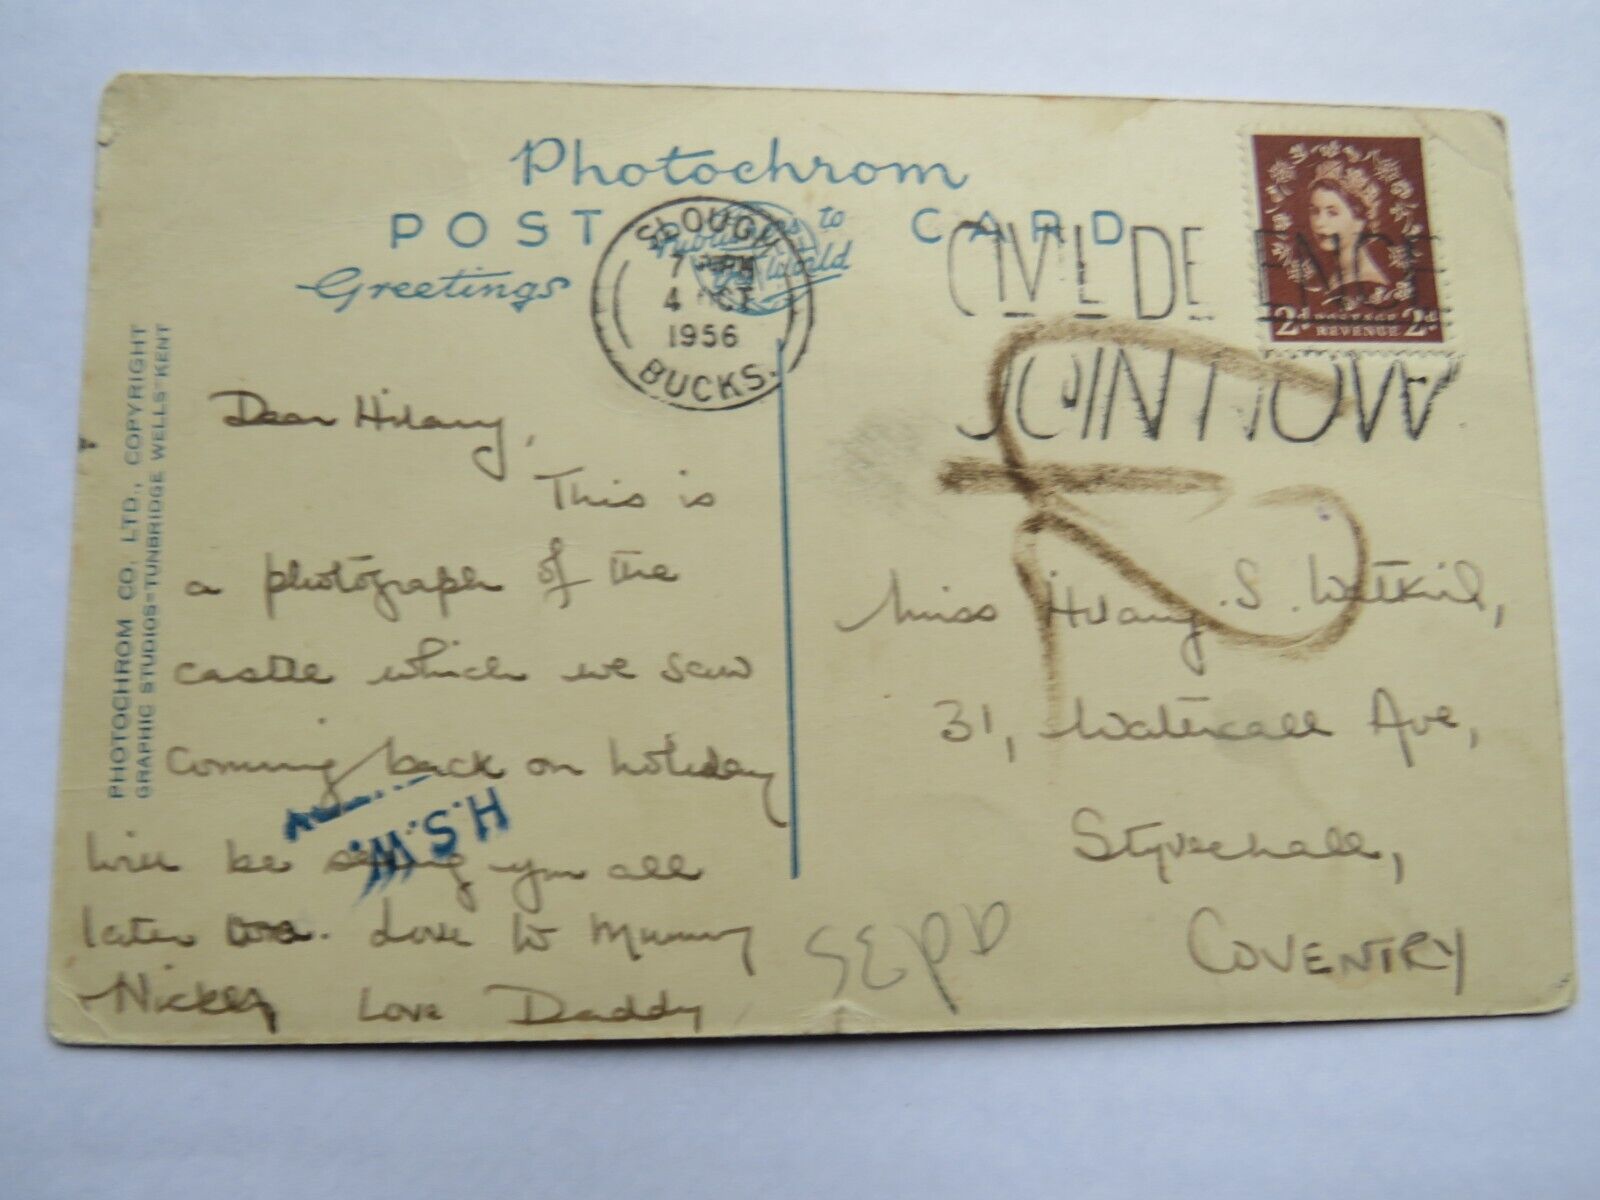 Photochrom
POST CARD
Greetings
Publishers to
World
SLOUGH
7
4 OCT
1956
BUCKS.
CIVIL DEFENCE
JOIN NOW
2d POSTAGE 2d
REVENUE
PHOTOCHROM CO. LTD., COPYRIGHT
GRAPHIC STUDIOS-TUNBRIDGE WELLS-KENT
Dear Hilary,
This is
a photograph of the
castle which we saw
coming back on holiday
will be seeing you all
later. Love to Mummy
Nicky Love Daddy
H.S.W.
Miss Hilary. S.
31, Ave,
Styvechale,
COVENTRY